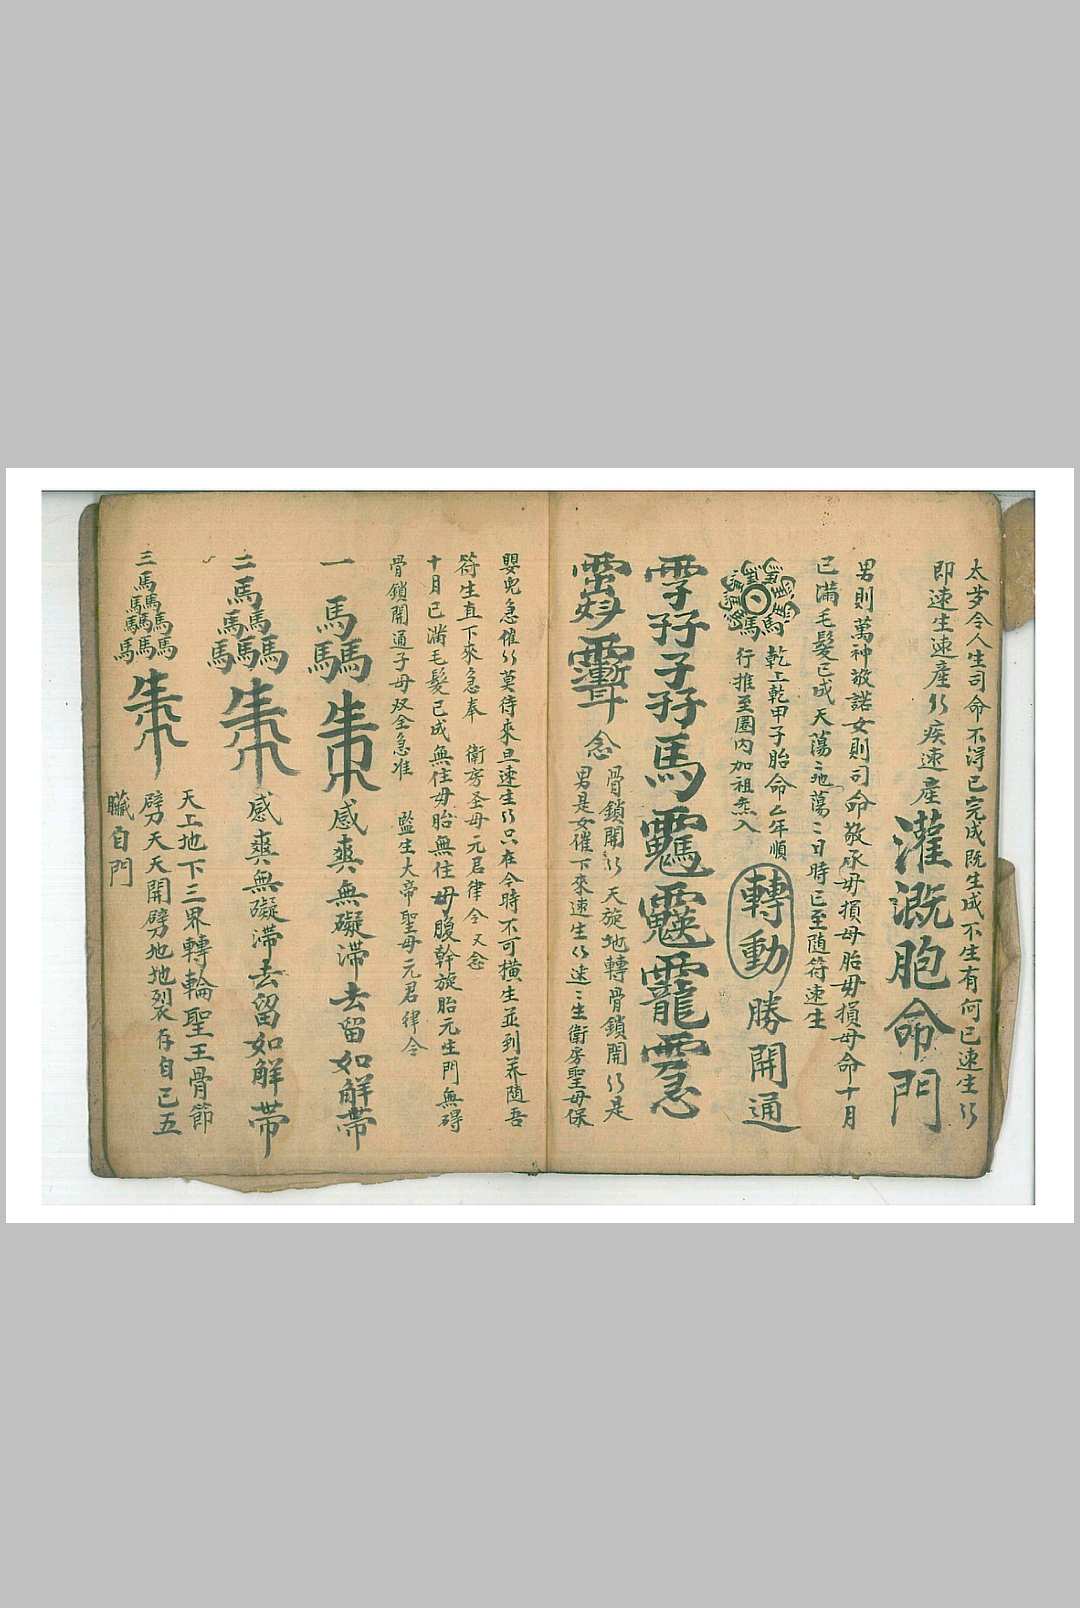 太歲令人生司命不淂已完成既生成不生有何已速生〻
即速生速產〻疾速產
灌溉胞命門
男則萬神敬諾女則司命敬承毋損母胎毋損母命十月
已滿毛髮已成天蕩〻地蕩〻日時已至随符速生
乾上乾甲子胎命乙年順
行推至圈内加祖炁入
轉動
勝開通
子
馬
念
骨鎖開〻天旋地轉骨鎖開〻是
男是女催下來速生〻速〻生衛房聖母保
嬰兒急催〻莫待來旦速生〻只在今時不可橫生並到养随吾
符生直下來急奉 衛房圣母元君律令又念
十月已滿毛髮已成無住母胎無住母腹幹旋胎元生門無碍
骨鎖開通子母双全急准 監生大帝聖母元君律令
一
馬
馬馬
感爽無礙滞去留如解帶
二
馬
馬馬
馬馬馬
感爽無礙滞去留如解帶
三
馬
馬馬
馬馬馬
馬馬馬
天上地下三界轉輪聖王骨節
劈天天開劈地地裂存自己五
臟自門